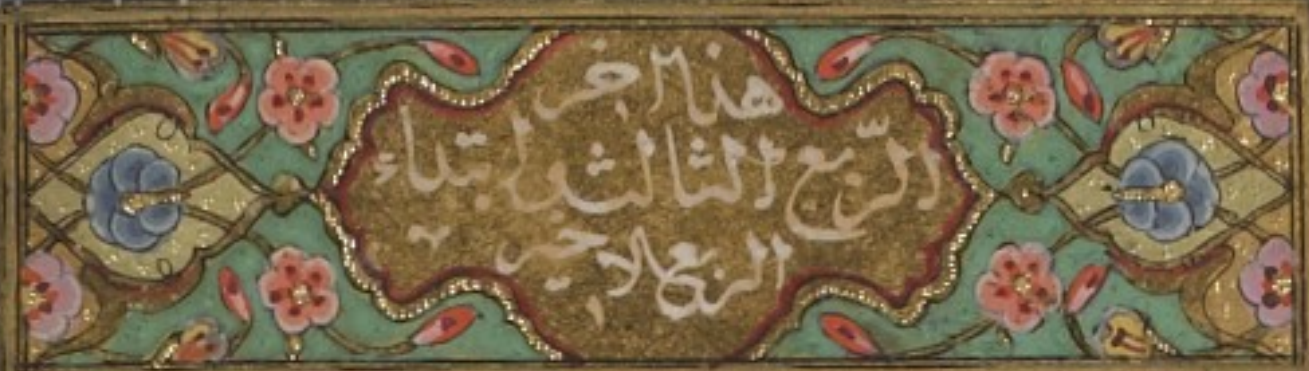 هذا اخر
الرّبع الثالث وابتداء
الربع الاخير